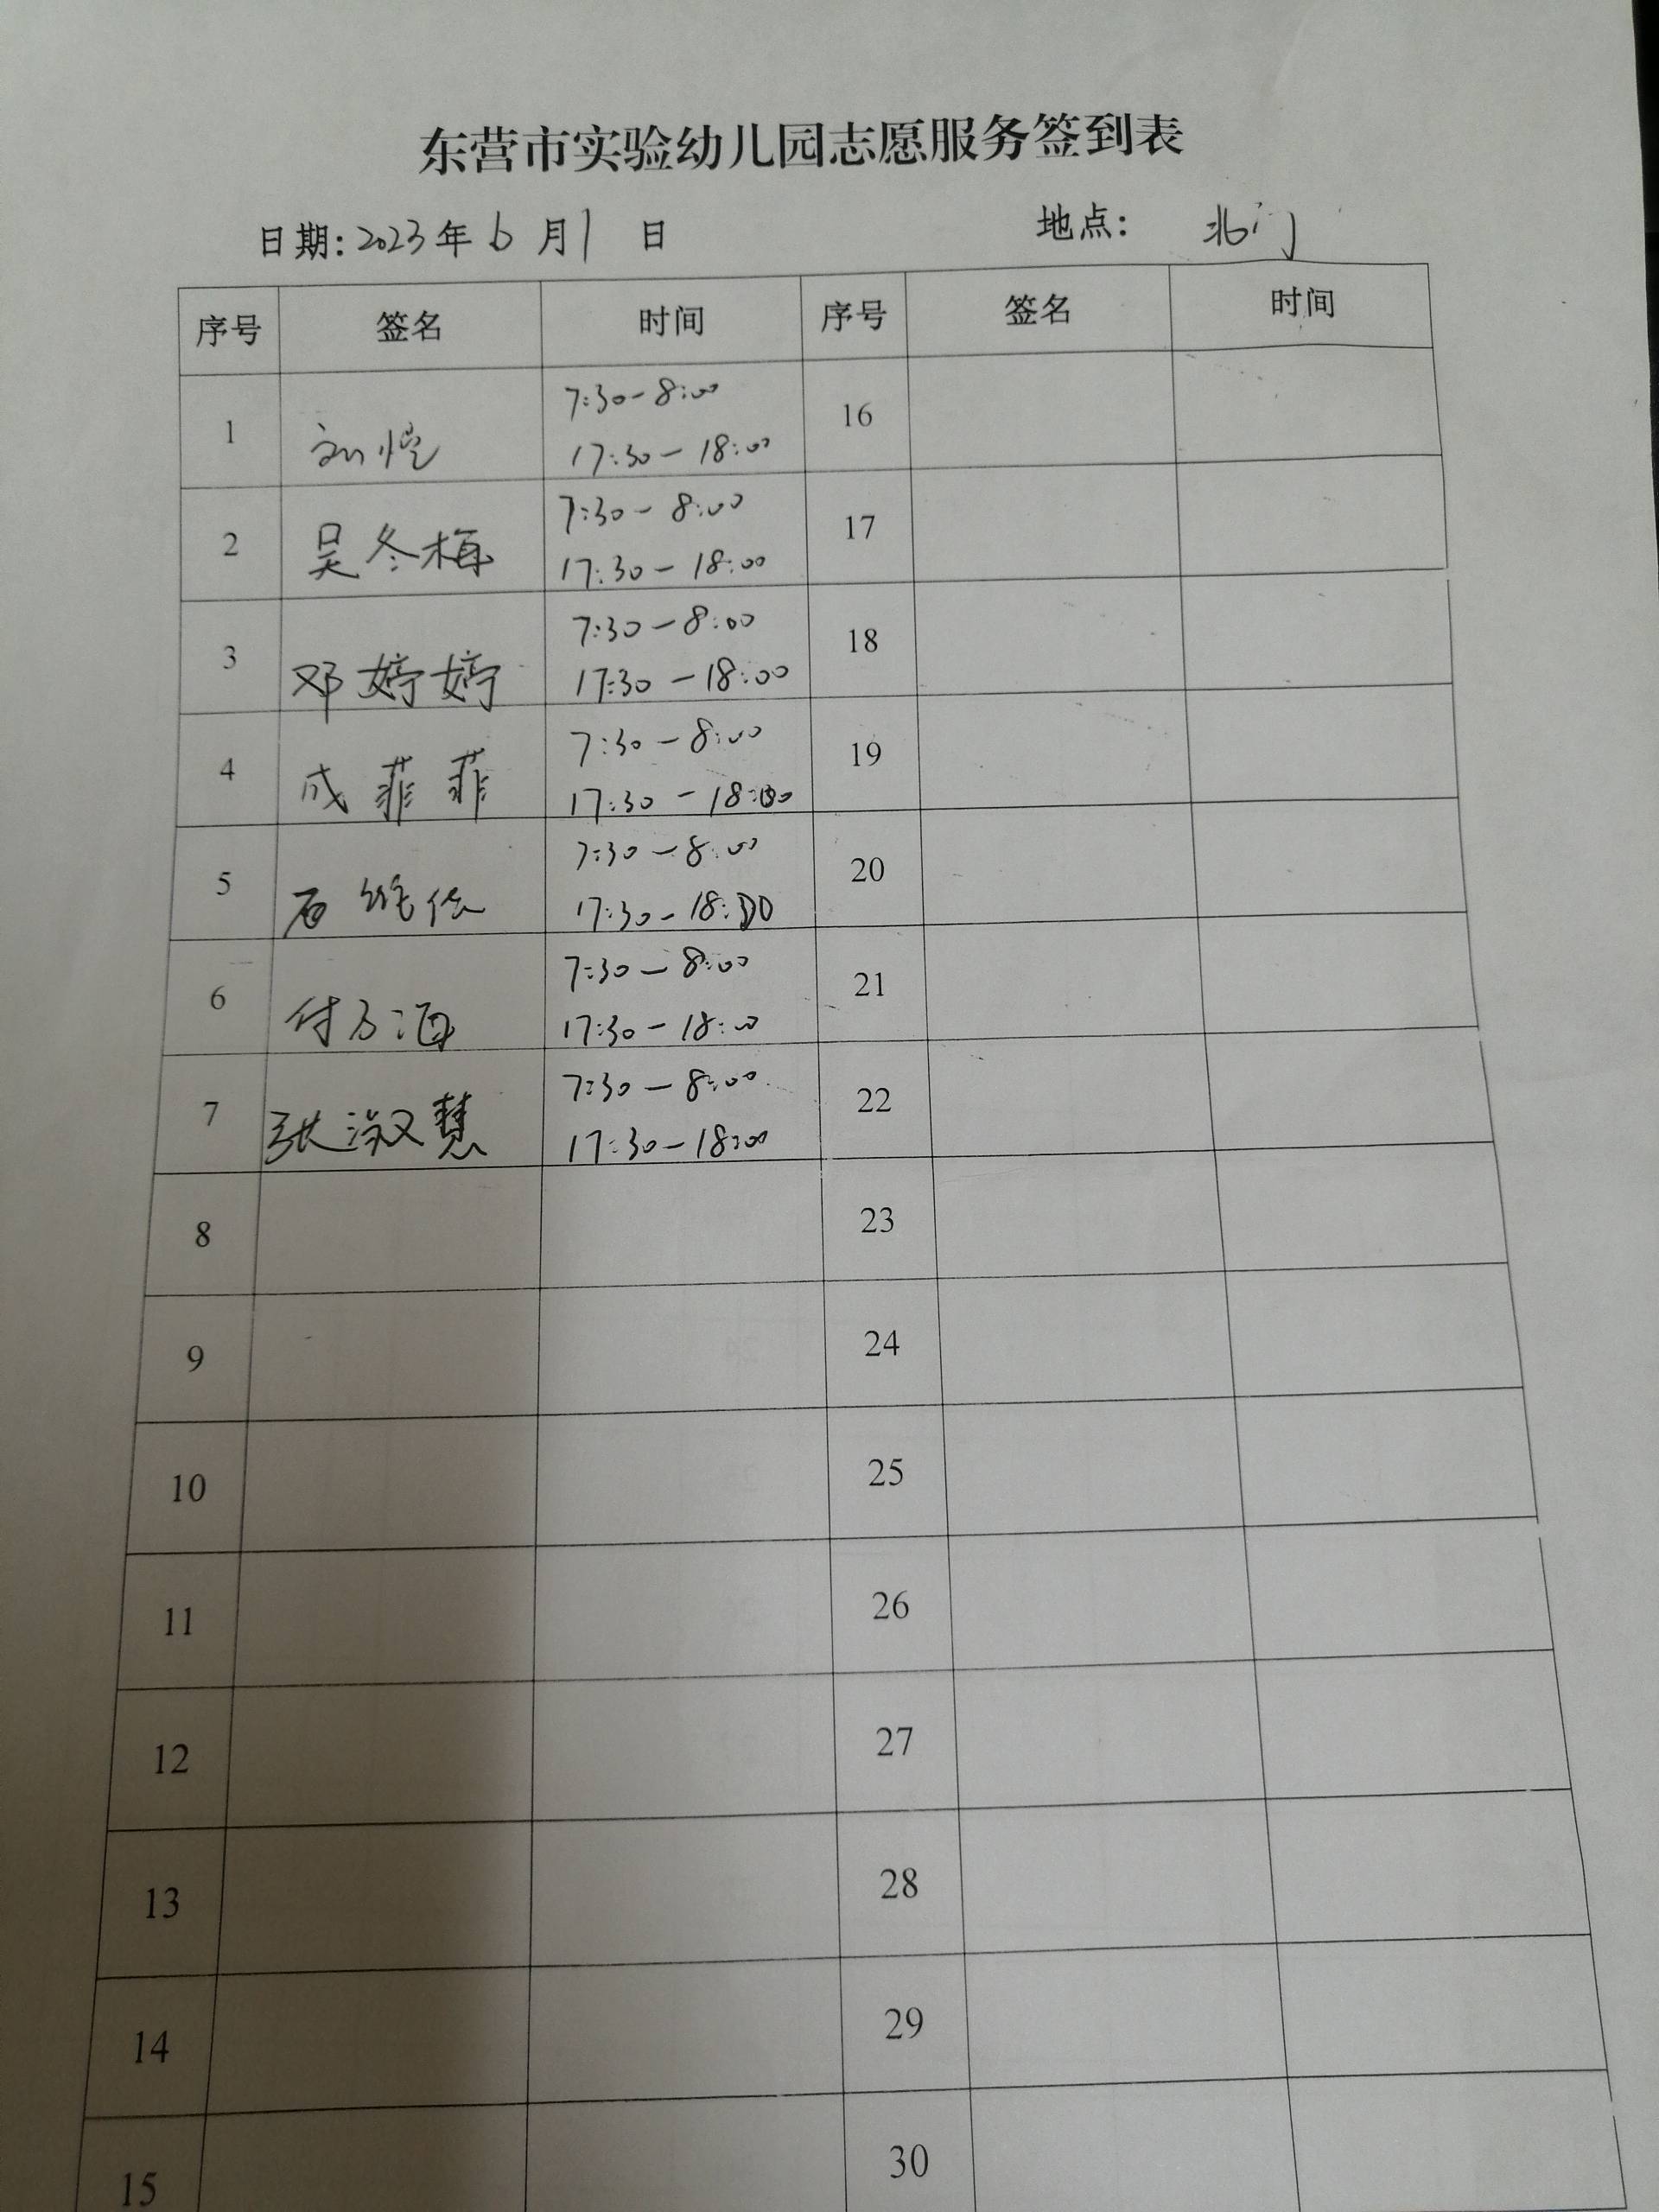 东营市实验幼儿园志愿服务签到表
日期:2023年6月1日 地点: 北门
序号 签名 时间 序号 签名 时间
1 刘 7:30-8:00 16
17:30-18:00
2 吴冬梅 7:30-8:00 17
17:30-18:00
3 邓婷婷 7:30-8:00 18
17:30-18:00
4 成菲菲 7:30-8:00 19
17:30-18:00
5 石维 7:30-8:00 20
17:30-18:00
6 付 7:30-8:00 21
17:30-18:00
7 张淑慧 7:30-8:00 22
17:30-18:00
8 23
9 24
10 25
11 26
12 27
13 28
14 29
15 30